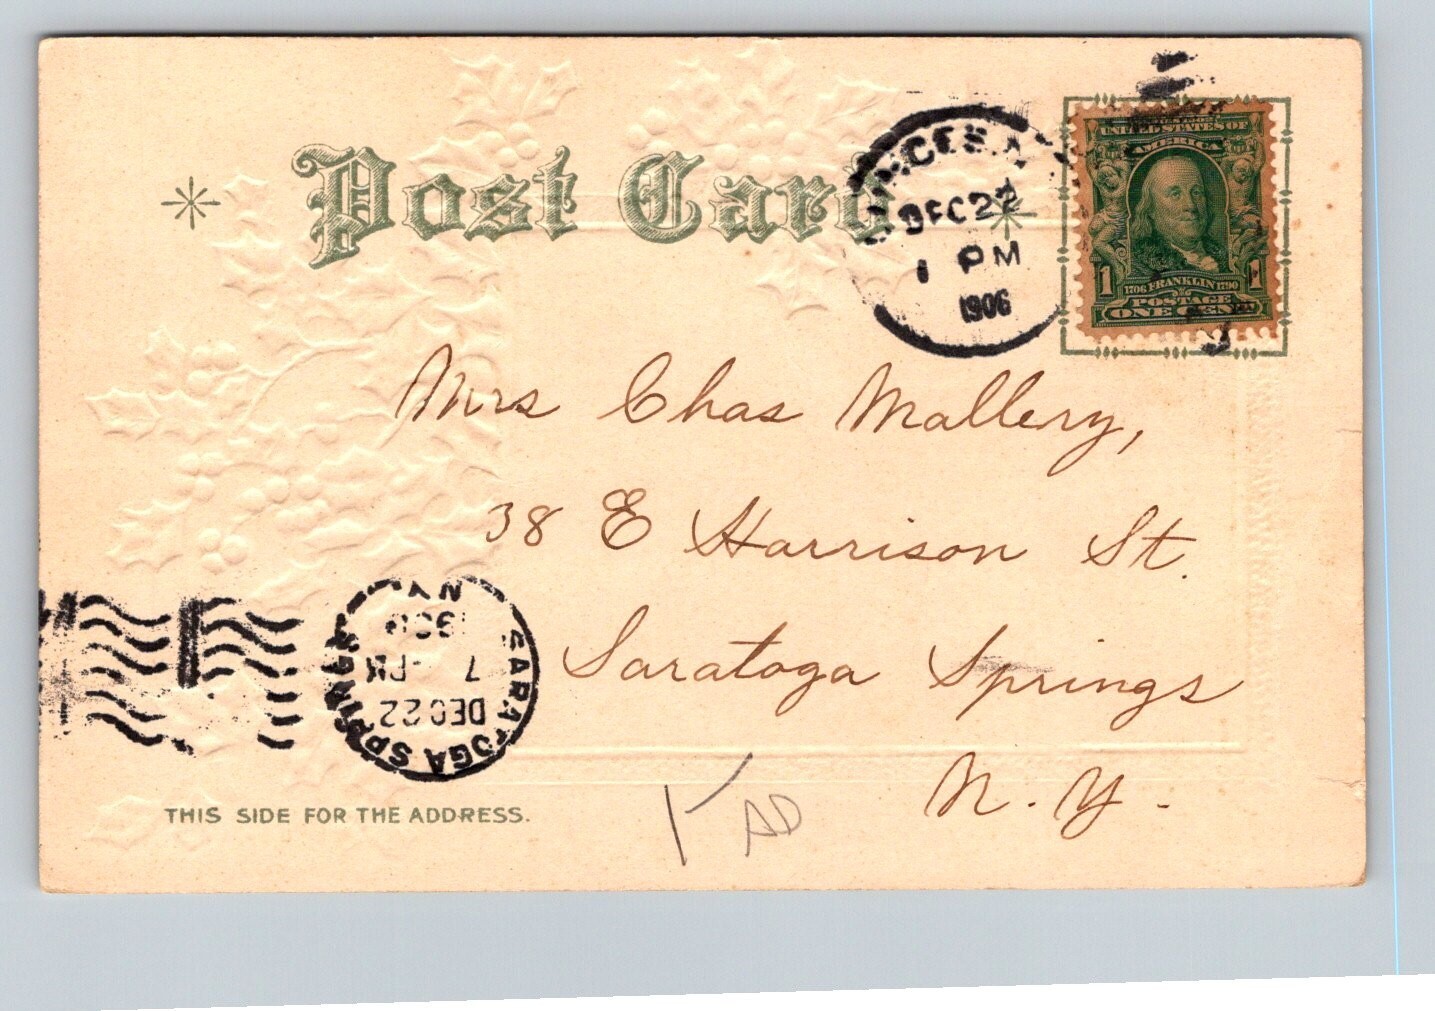 Post Card
DEC 22
1 PM
1906
UNITED STATES OF
AMERICA
1 1706 FRANKLIN 1790 1
POSTAGE
ONE CENT
Mrs Chas Mallery,
38 E Harrison St.
Saratoga Springs
N. Y.
SARATOGA SPRINGS
DEC 22
7 - PM
190
N.Y.
THIS SIDE FOR THE ADDRESS.
AD